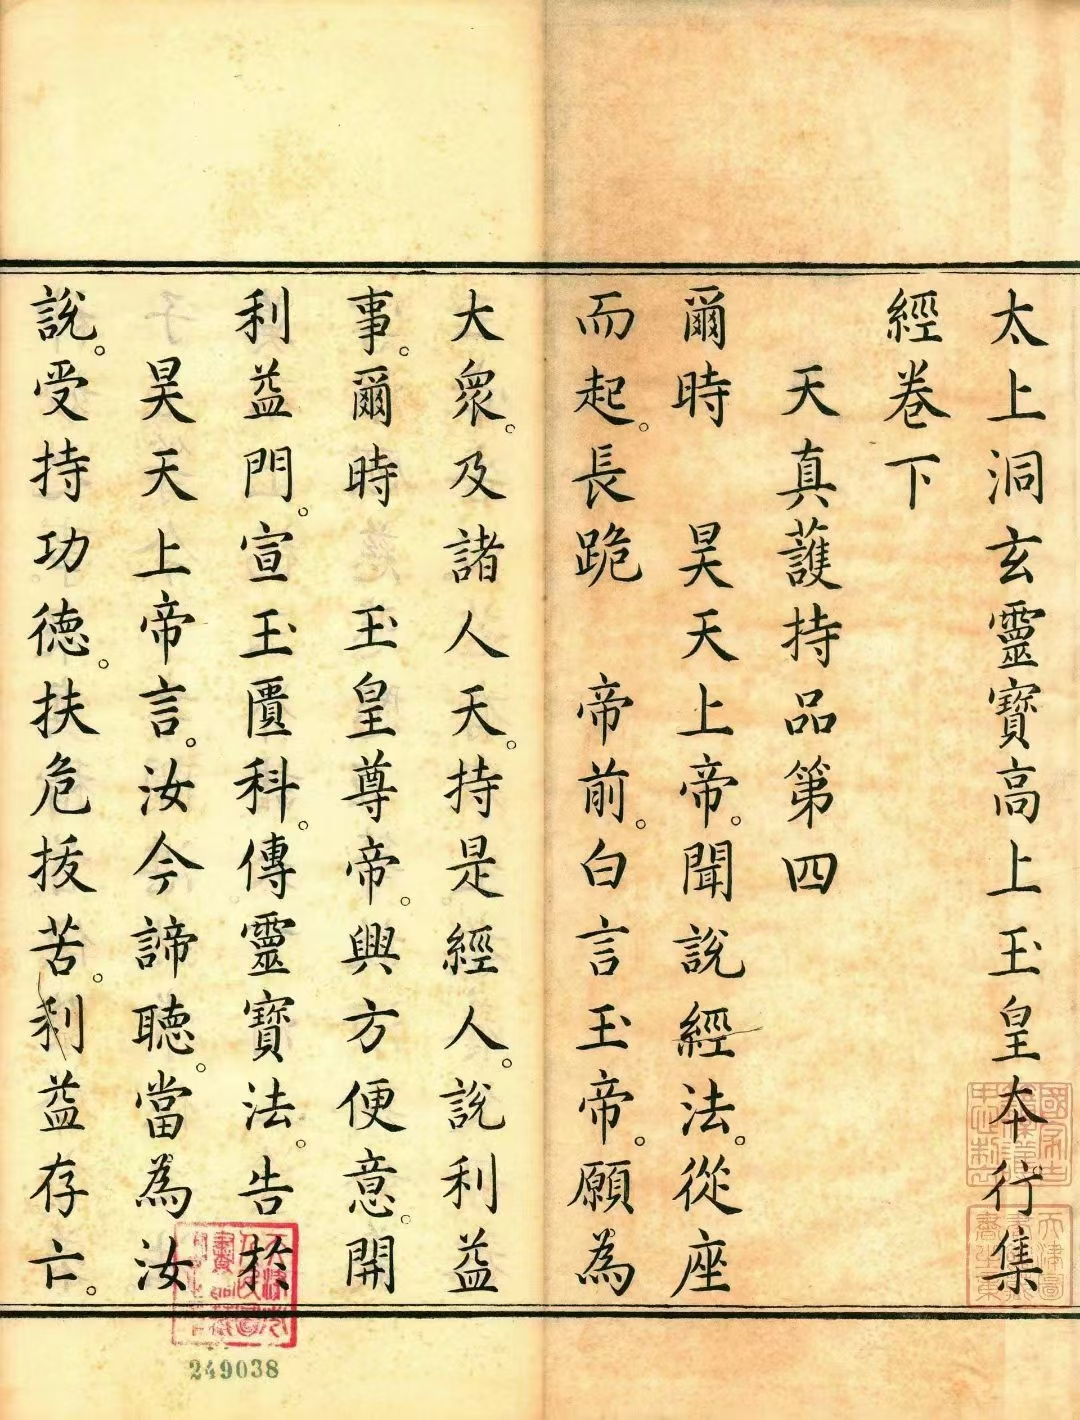 太上洞玄靈寶高上玉皇本行集
經卷下
天真護持品第四
爾時　昊天上帝。聞說經法。從座
而起。長跪　帝前。白言玉帝。願為
大衆。及諸人天。持是經人。說利益
事。爾時　玉皇尊帝。興方便意。開
利益門。宣玉匱科。傳靈寶法。告於
昊天上帝言。汝今諦聽。當為汝
說。受持功德。扶危拔苦。利益存亡。
249038